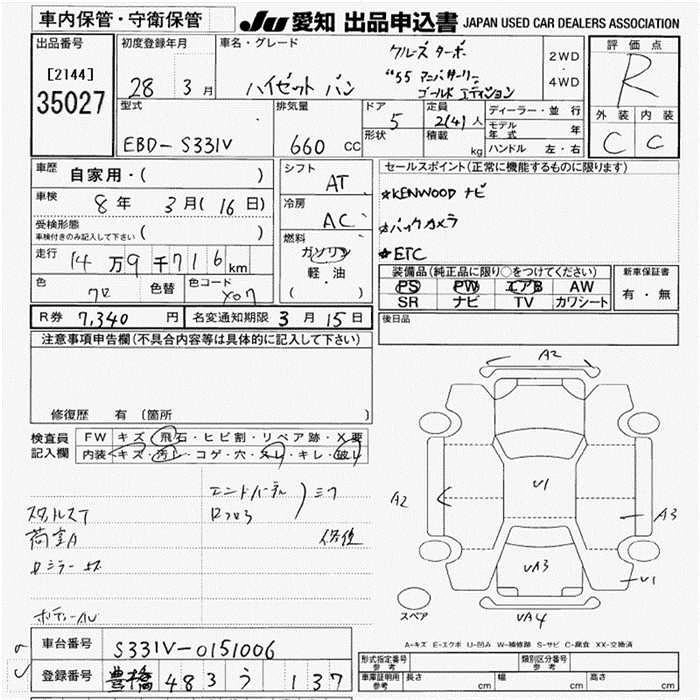 車内保管・守衛保管
JU 愛知 出品申込書 JAPAN USED CAR DEALERS ASSOCIATION
出品番号
[2144]
35027
初度登録年月
28 3 月
車名・グレード
ハイゼット バン
クルーズ ターボ
"55 アニバーサリー
ゴールド エディション
2WD
・
4WD
評価点
R
外装 内装
C C
型式
EBD-S331V
排気量
660 CC
ドア
5
形状
定員
2(4)人
積載
kg
ディーラー・並行
モデル年式 年
ハンドル 左・右
車歴 自家用・( )
車検 8 年 3 月( 16 日)
受検形態
車検付きのみ記入して下さい ( )
走行 14 万 9 千 716 km
色 クロ 色替 色コード X07
シフト
AT
冷房
AC
燃料
ガソリン
軽・油
( )
セールスポイント(正常に機能するものに限ります)
☆KENWOOD ナビ
☆バックカメラ
☆ETC
装備品(純正品に限り○をつけてください)
PS PW エアB AW
SR ナビ TV カワシート
新車保証書
有・無
R券 7,340 円 名変通知期限 3 月 15 日
後日品
注意事項申告欄(不具合内容等は具体的に記入して下さい)
修復歴 有 〔箇所 〕
検査員記入欄
FW キズ・飛石・ヒビ割・リペア跡・X要
内装 キズ・汚レ・コゲ・穴・スレ・キレ・破レ
荷室A
A2
U1
A2
A3
UA3
U1
UA4
スペア
A-キズ E-エクボ U-凹み W-補修跡 S-サビ C-腐食 XX-交換済
車台番号 S331V-0151006
登録番号 豊橋 483 う 137
形式指定番号 参考
類別区分番号 参考
車庫証明用 参考 長さ cm 幅 cm 高さ cm